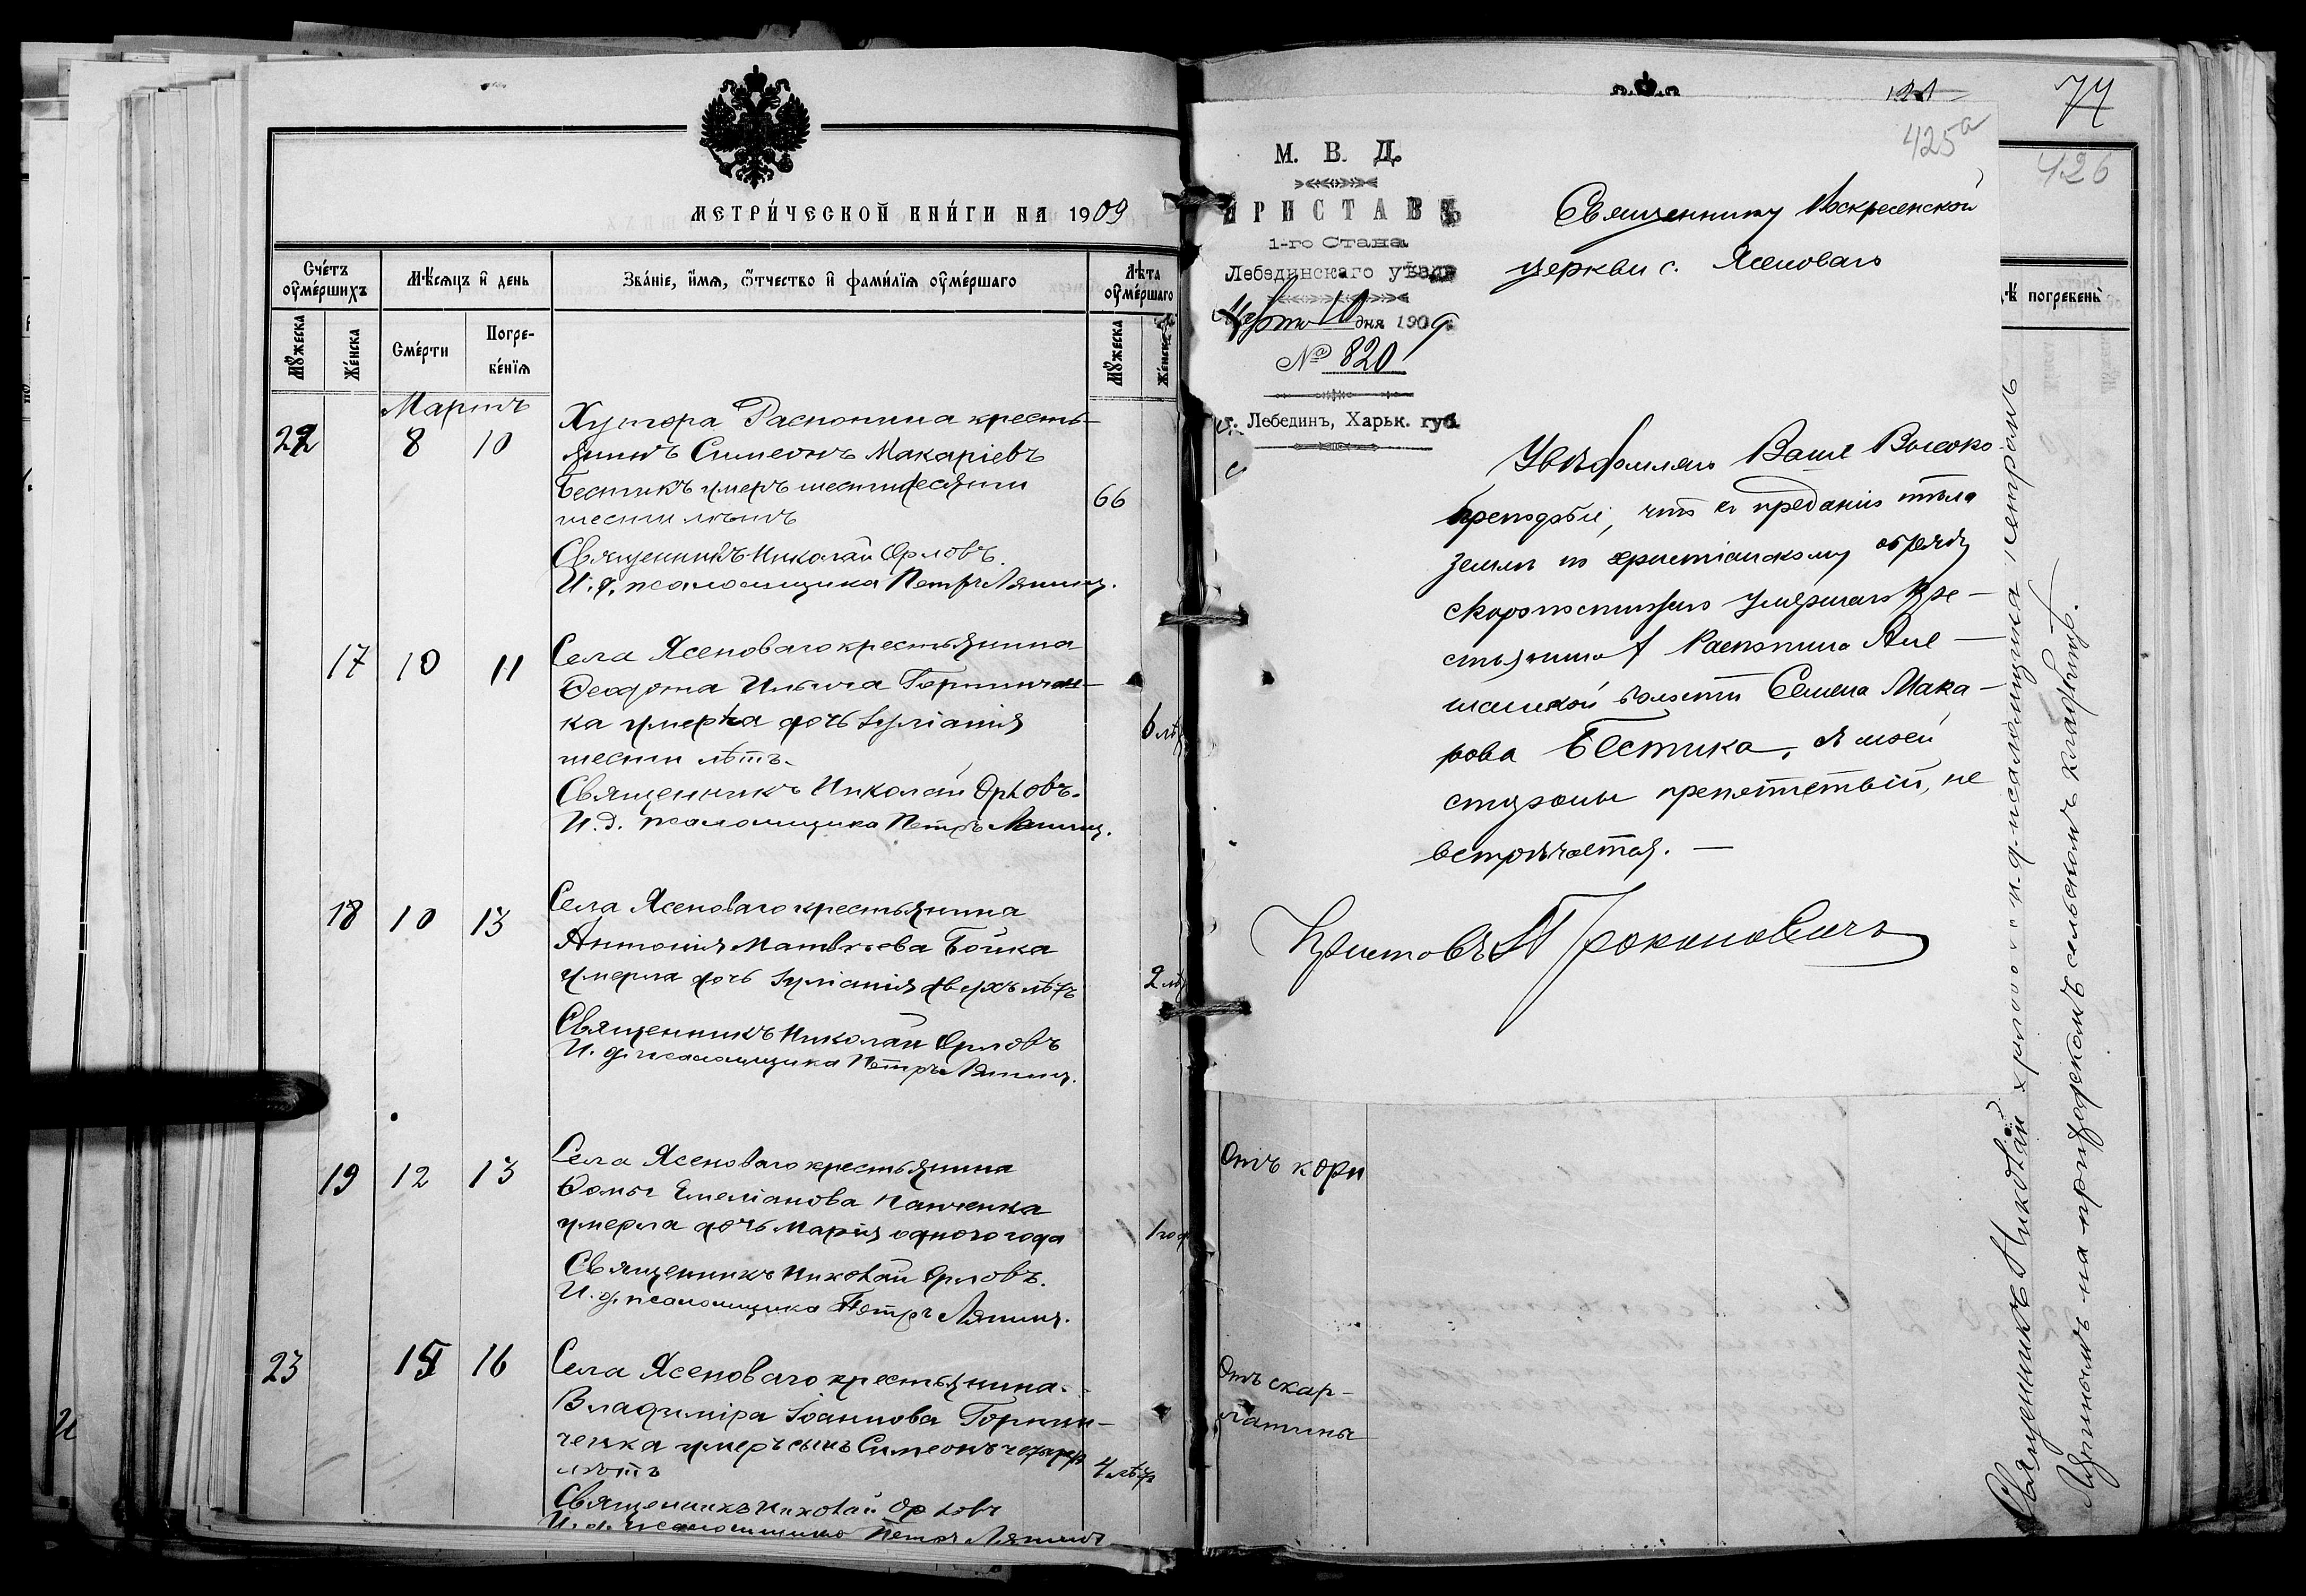 МЕТРИ́ЧЕСКОЙ КНИ́ГИ НА 1909
Сче́тъ оу҆ме́ршихъ
Мѣ́сѧцъ и҆ день
Зва́нїе, и҆́мѧ, ѻ҆́тчество и҆ фами́лїѧ оу҆ме́ршаго
Лѣ́та оу҆ме́ршаго
Мꙋ́жеска
Же́нска
Сме́рти
Погре-
бе́нїѧ
Мꙋ́жеска
Же́нска
Мартъ
22
8
10
Хутора Распопина кресть-
янинъ Симеонъ Макаріевъ
Бестикъ умеръ шестидесяти
шести лѣтъ
66
Священникъ Николай Орловъ.
И. д. псаломщика Петръ
17
10
11
Села Ясеноваго крестьянина
Ѳеодота Ильича
ка умерла дочь Іуліанія
шести лѣтъ.
6 лѣт
Священникъ Николай Орловъ.
И. д. псаломщика Петръ
18
10
13
Села Ясеноваго крестьянина
Антонія Матвѣева Бойка
умерла дочь Іуліанія двухъ лѣтъ
2 лѣт
Священникъ Николай Орловъ
И. д. псаломщика Петръ
19
12
13
Села Ясеноваго крестьянина
Ѳомы Емеліанова Панченка
умерла дочь Марія одного года
1 год
Священникъ Николай Орловъ.
И. д. псаломщика Петръ
23
15
16
Села Ясеноваго крестьянина
Владиміра Іоаннова
ченка умеръ сынъ Симеонъ четырехъ
лѣтъ
4 лѣтъ
Священникъ Николай Орловъ
И. д. псаломщика Петръ
74
425а
426
М. В. Д.
ПРИСТАВЪ
1-го Стана
Лебединскаго уѣзда
Марта 10 дня 1909 г.
№ 820
г. Лебединъ, Харьк. губ.
Священнику Воскресенской
церкви с. Ясеноваго
Увѣдомляю Ваше Высоко
преподобіе, что къ преданію тѣла
землѣ по христіанскому обряду
скоропостижно умершаго кре-
стьянина х Распопина
волости Семена Мака-
рова Бестика, съ моей
стороны препятствій, не
встрѣчается. —
Приставъ
погребенъ
Отъ кори
Отъ скар-
латины
Священникъ Николай Орловъ с и. д. псаломщика Петромъ
на приходскомъ сельскомъ кладбищѣ.